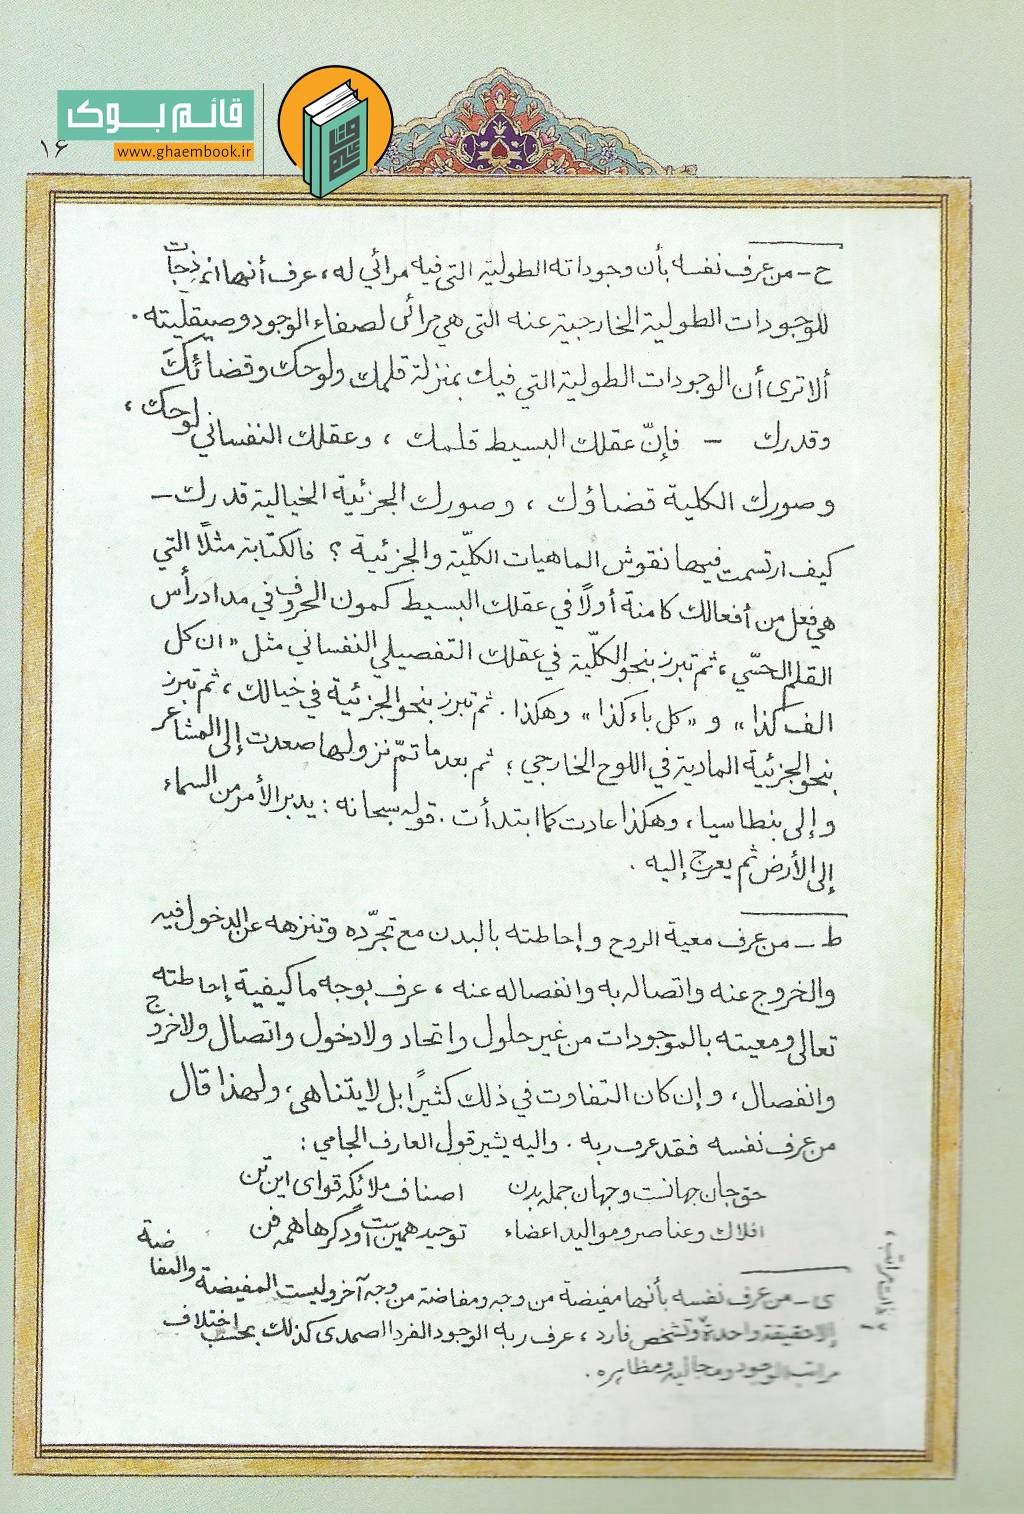 قائم بوک
www.ghaembook.ir
۱۶
ح – من عرف نفسه بأن وجوداته الطولية التي فيه مرائي له، عرف أنها انموذجات
للوجودات الطولية الخارجية عنه التي هي مرائي لصفاء الوجود وصيقليته.
ألا ترى أن الوجودات الطولية التي فيك بمنزلة قلمك ولوحك وقضائك
وقدرك – فإنّ عقلك البسيط قلمك، وعقلك النفساني لوحك،
وصورك الكلية قضاؤك، وصورك الجزئية الخيالية قدرك –
كيف ارتسمت فيها نقوش الماهيات الكلّية والجزئية؟ فالكتابة مثلًا التي
هي فعل من أفعالك كامنة أولًا في عقلك البسيط كمون الحروف في مداد رأس
القلم الحسّي، ثم تبرز بنحو الكلّية في عقلك التفصيلي النفساني مثل «ان كل
الف كذا» و «كل باء كذا» وهكذا. ثم تبرز بنحو الجزئية في خيالك، ثم تبرز
بنحو الجزئية المادية في اللوح الخارجي؛ ثم بعد ما تمّ نزولها صعدت إلى المشاعر
وإلى بنطاسيا، وهكذا عادت كما ابتدأت. قوله سبحانه: يدبر الأمر من السماء
إلى الأرض ثم يعرج إليه.
ط – من عرف معية الروح وإحاطته بالبدن مع تجرّده وتنزهه عن الدخول فيه
والخروج عنه واتصاله به وانفصاله عنه، عرف بوجه ما كيفية إحاطته
تعالى ومعيته بالموجودات من غير حلول واتحاد ولا دخول واتصال ولا خروج
وانفصال، وإن كان التفاوت في ذلك كثيرًا بل لا يتناهى، ولهذا قال
من عرف نفسه فقد عرف ربه. واليه يشير قول العارف الجامي:
حق جان جهانست وجهان جمله بدن اصناف ملائكه قواى اين تن
افلاك وعناصر ومواليد اعضاء توحيد همين است ودگرها همه فن
ى – من عرف نفسه بأنها مفيضة من وجه ومفاضة من وجه آخر وليست المفيضة والمفاضة
إلا حقيقة واحدة وتشخص فارد، عرف ربه الوجود الفرد الصمدى كذلك بحسب اختلاف
مراتب الوجود ومجاليه ومظاهره.